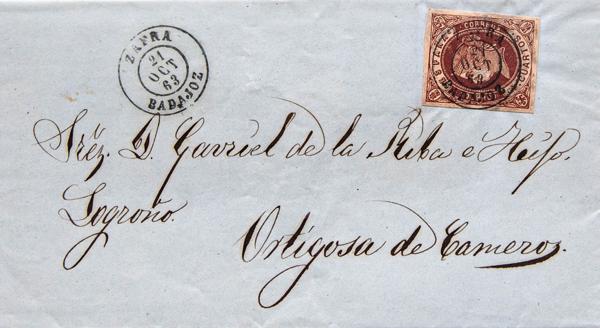 ZAFRA
21
OCT
63
BADAJOZ
CORREOS
CUARTOS
ZAFRA
OCT
63
BADAJOZ
Sréz. D. Gavriel de la Riba e Hijo.
Logroño.
Ortigosa de Cameros.